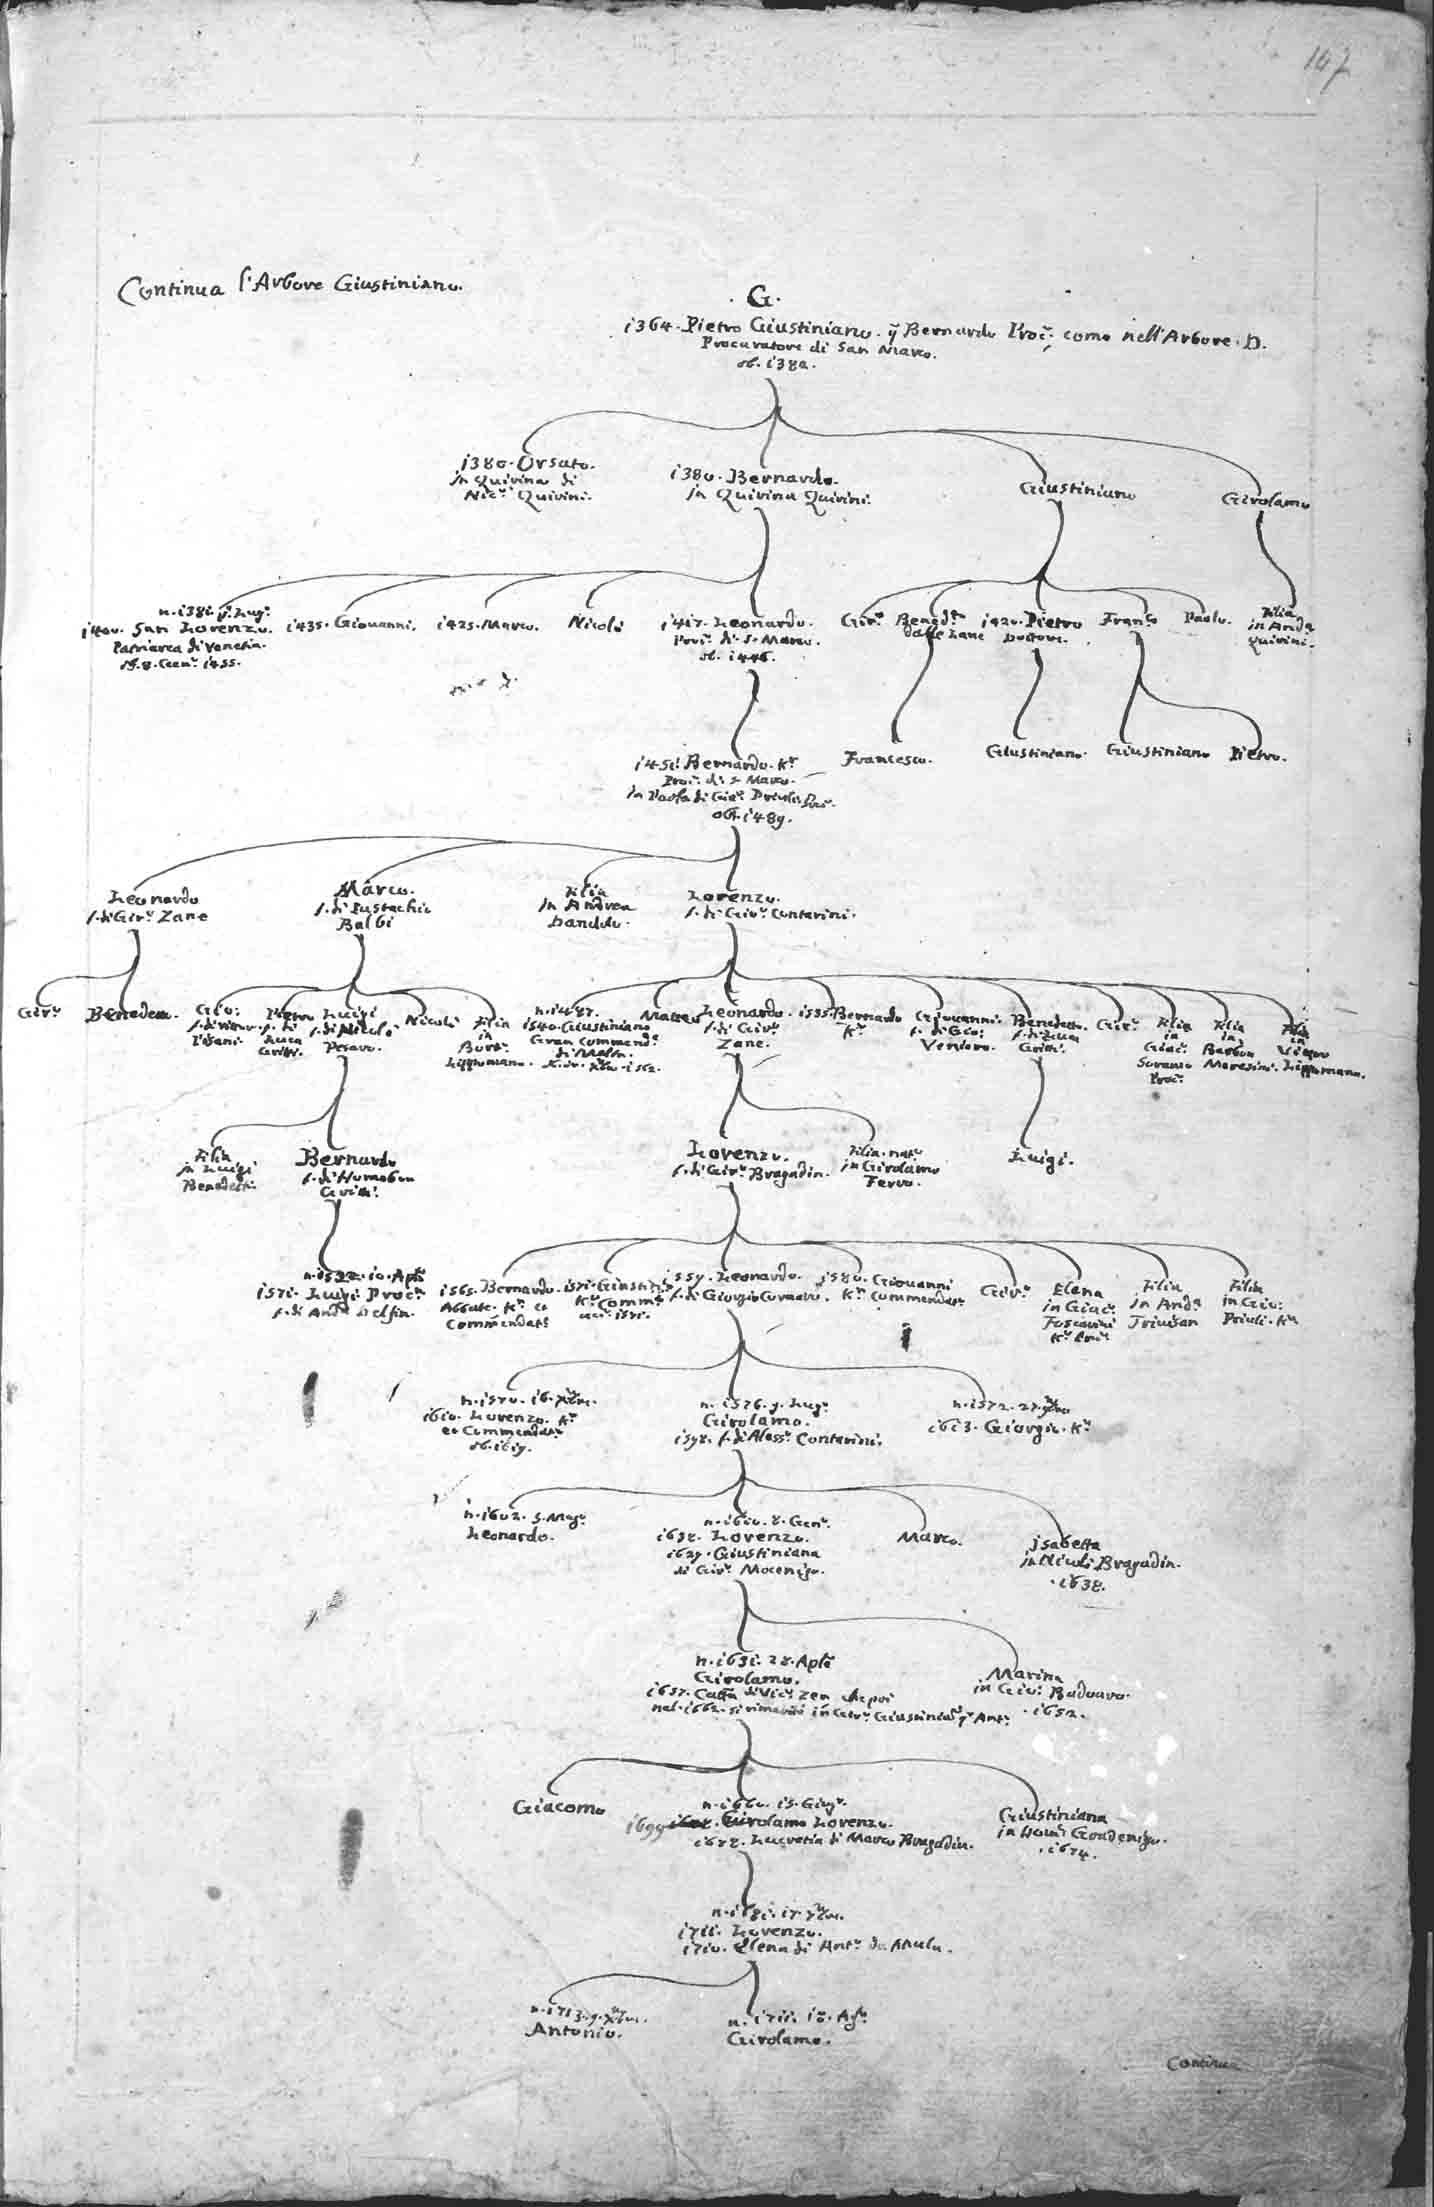 167
Continua l'Arbore Giustiniano.
.G.
i364. Pietro Giustiniano. q Bernardo Proc.r como nell'Arbore. D.
Procuratore di San Marco.
ob. i382.
i380. Orsato.
in Quirina di
Nic.o Quirini.
i380. Bernardo.
in Quirina Quirini.
Giustiniano
Girolamo
n. i381. p.o Lug.o
i400. San Lorenzo.
Patriarca di Venetia.
ob. 8. Gen.o i455.
i435. Giovanni.
i425. Marco.
Nicolò
i417. Leonardo.
Proc.r di S. Marco.
ob. i446.
Gir.o
Bened.to
dalle Zane
i420. Pietro
Dottore.
Fran.co
Paolo.
Filia
in And.a
Quirini.
i451. Bernardo. K.r
Proc.r di S. Marco.
in di Gir.o Priuli Proc.r
ob. i489.
Francesco.
Giustiniano.
Giustiniano
Pietro.
Leonardo
f. di Gir.o Zane
Marco.
f. di Eustachio
Balbi
Filia
in Andrea
Dandolo.
Lorenzo.
f. di Giov.i Contarini.
Gir.o
Benedeto.
Gio:
Pisani.
Pietro
f. di
Luca
Gritti.
Luigi
f. di Nicolò
Pesaro.
Nicolò
Filia
in
Bort.o
Lippomano.
n. i487.
i540. Giustiniano
Gran Commend.r
di Malta.
i562.
Matteo
Leonardo.
f. di Gir.o
Zane.
i535. Bernardo
K.r
Giovanni.
f. di Gio:
Veniero.
Benedetto.
f. di Zuan
Gritti.
Gir.o
Filia
in
Giac.o
Soranzo
Proc.r
Filia
in
Barbon
Moresini.
Filia
in
Lippomano.
Filia
in Luigi
Benedetti.
Bernardo
f. di Homobon
Gritti.
Lorenzo.
f. di Gir.o Bragadin.
Filia. nat.
in Girolamo
Ferro.
Luigi.
n. i532. io. Ap.le
i571. Luigi Proc.r
f. di And.a Delfin.
i565. Bernardo.
Abbate. K.r e
Commendat.r
i571. Giustin.
K.r Comm.r
i559. Leonardo.
f. di Giorgio Cornaro.
i580. Giovanni
K.r Commendat.r
Gir.o
Elena
in Giac.o
Foscarini
K.r Proc.r
Filia
in And.a
Trivisan
Filia
in Gio:
Priuli. K.r
n. i570. i6. Xbre.
i610. Lorenzo. K.r
e Commendat.r
ob. i619.
n. i576. 9. Lug.o
Girolamo.
i598. f. di Aless.o Contarini.
n. i572. 27.
i613. Giorgio. K.r
n. i602. 5. Mag.o
Leonardo.
n. i610. 8. Gen.o
i638. Lorenzo.
i629. Giustiniana
di Gir.o Mocenigo.
Marco.
Isabetta
in Nicolò Bragadin.
. i638.
n. i631. 28. Ap.le
Girolamo.
i657. Catt.a di Vic.o Zen che poi
nel. i662. si rimaritò in Gir.o Giustinian q Ant.o
Marina
in Gio: Badoaro.
. i652.
Giacomo
n. i660. i5. Giug.o
i699 Girolamo Lorenzo.
i678. Lucretia di Marco Bragadin.
Giustiniana
in Gradenigo.
. i674.
n. i681. i7.
i711. Lorenzo.
i710. Elena di Ant.o da Mula.
n. i713. 9. Xbre.
Antonio.
n. i711. io. Ag.o
Girolamo.
Continua